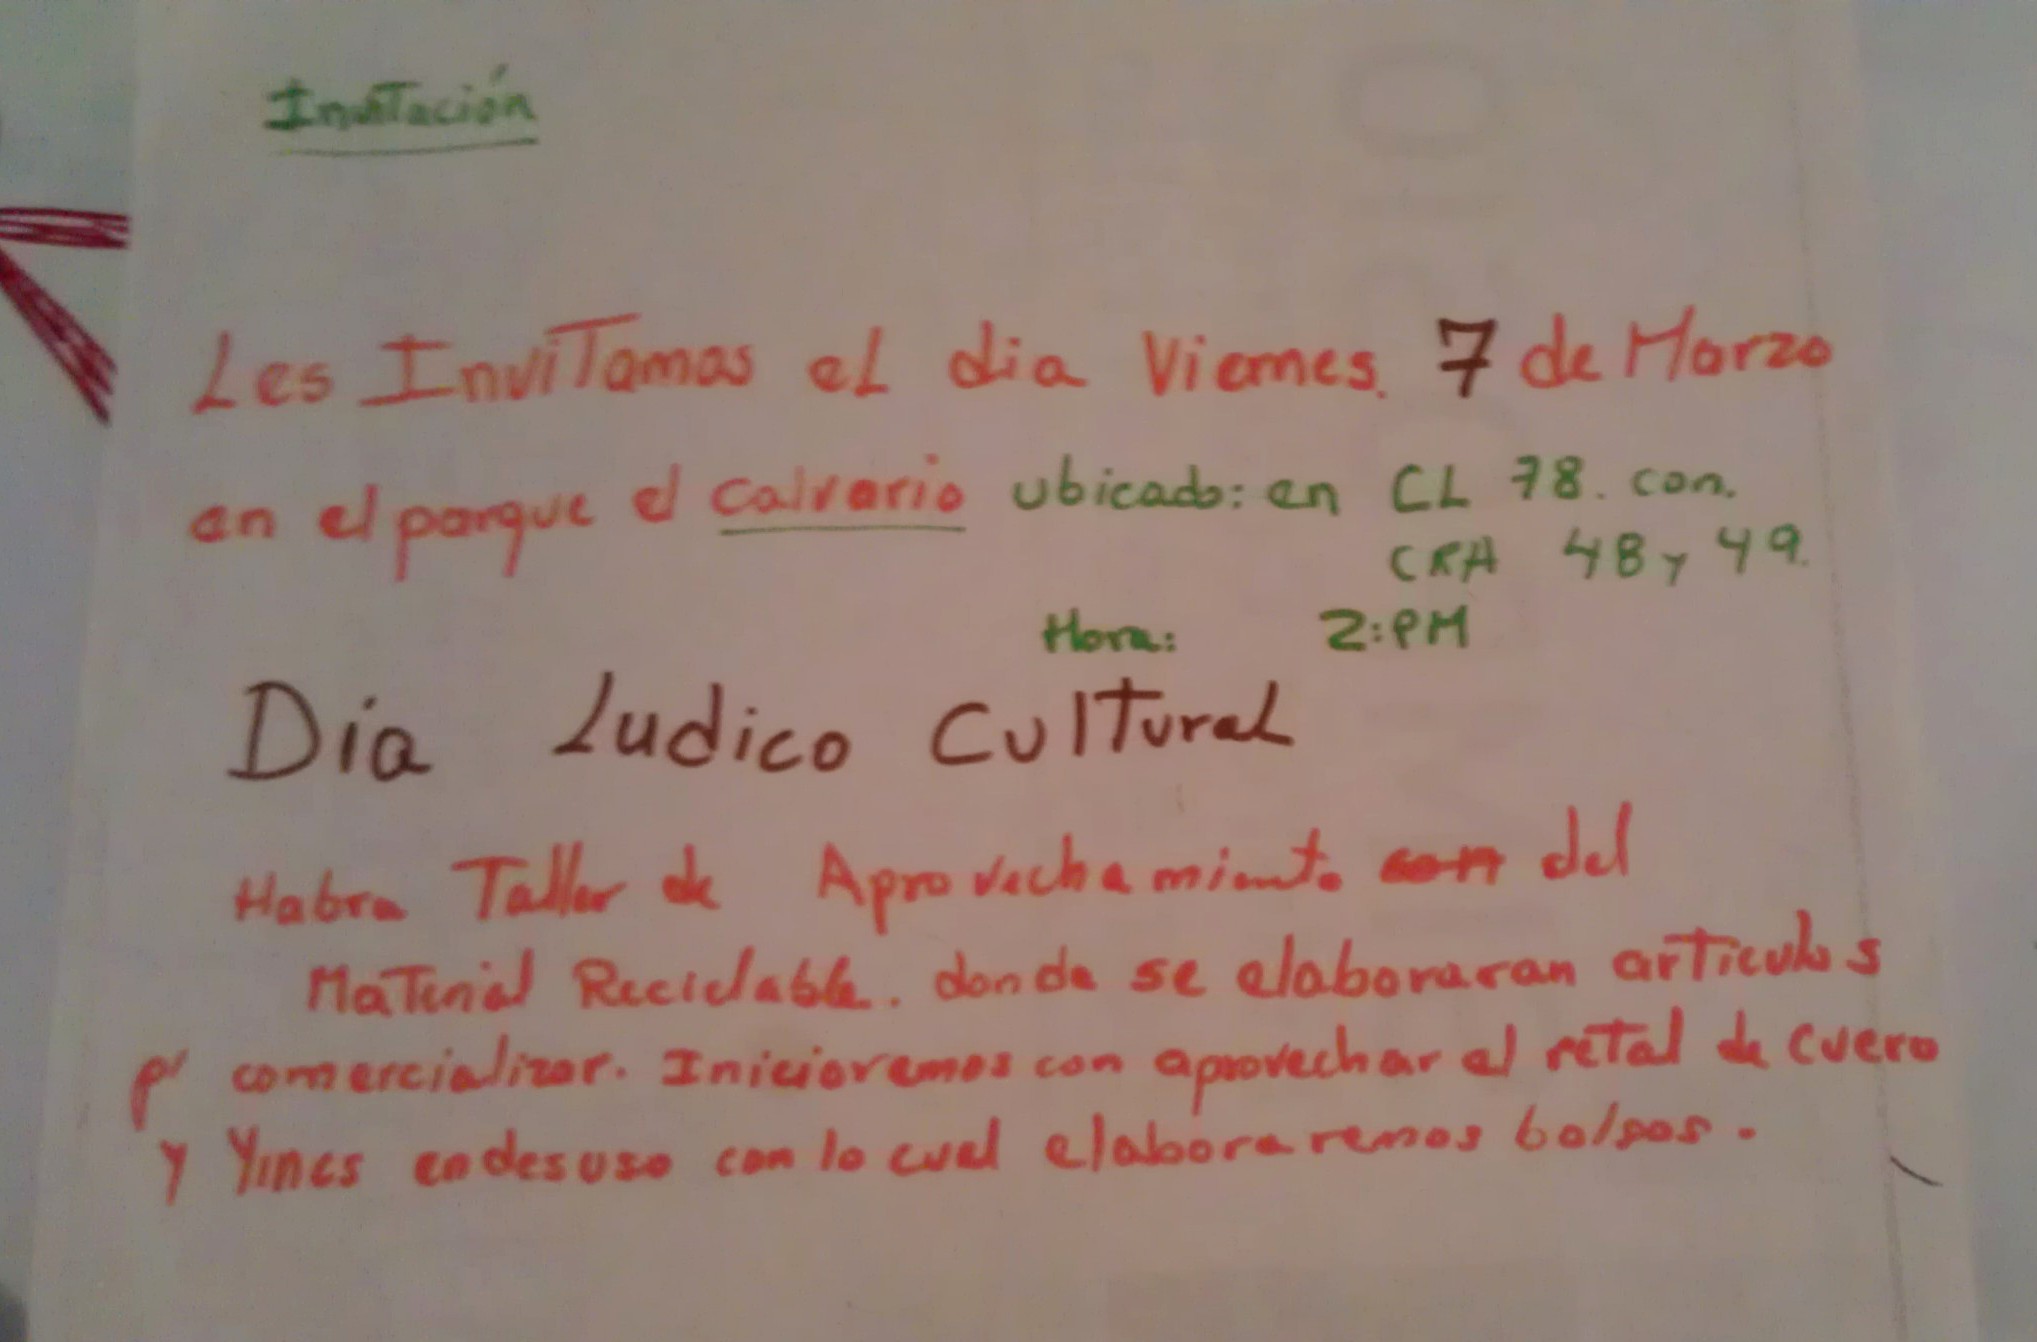 Invitación
Les InviTamos el dia Viernes. 7 de Marzo
en el parque el calvario ubicado: en CL 78. con.
CRA 48 y 49.
Hora: 2:PM
Día Ludico CulTural
Habra Taller de Aprovechamiento con del
MaTerial Reciclable. donde se elaboraran articulos
p' comercializar. Iniciaremos con aprovechar el reTal de cuero
y Yines en desuso con lo cual elaboraremos bolsos.